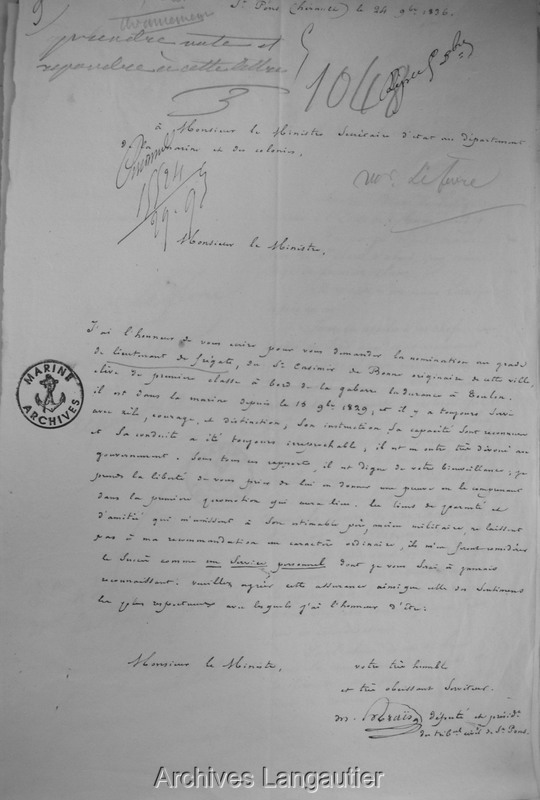 St Pons (hérault) le 24 9bre 1836.
Avancement
prendre note et
repondre à cette lettre
3
1048
à Monsieur le Ministre Secrétaire d'état au département
de la marine et des colonies,
Personnel
mr. Lefevre
Monsieur le Ministre,
J'ai l'honneur de vous écrire pour vous demander la nomination au grade
de lieutenant de frégate, du Sr. Casimir de Bonne originaire de cette ville,
élève de première classe à bord de la gabarre l'endurance à Toulon.
il est dans la marine depuis le 18 9bre 1829, et il y a toujours servi
avec zèle, courage, et distinction, Son instruction Sa capacité Sont reconnues
et Sa conduite a été toujours irréprochable, il est en outre très dévoué au
gouvernement. Sous tous ces rapports, il est digne de votre bienveillance; je
prends la liberté de vous prier de lui en donner une preuve en le comprenant
dans la première promotion qui aura lieu. les liens de parenté et
d'amitié qui m'unissent à Son estimable père, ancien militaire, ne laissent
pas à ma recommandation un caractère ordinaire, ils m'en font considérer
le Succès comme un Service personnel dont je vous Serai à jamais
reconnaissant. veuillez agréer cette assurance ainsi que celle des Sentiments
les plus respectueux avec lesquels j'ai l'honneur d'être:
Monsieur le Ministre,
votre très humble
et très obeissant Serviteur.
député et présidt.
du tribal. civil de St. Pons.
MARINE
ARCHIVES
Archives Langautier